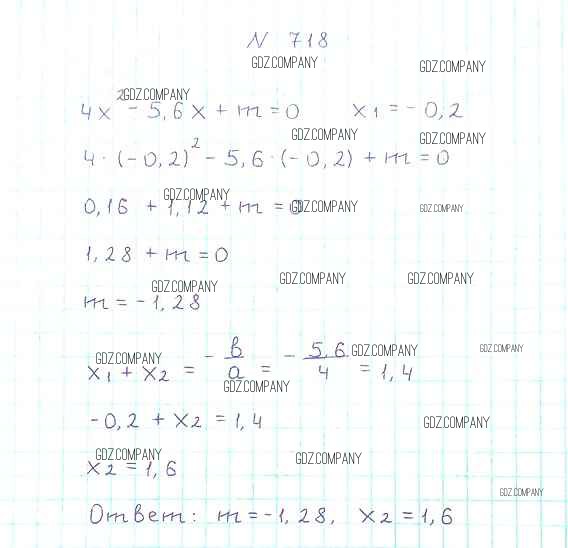 N 718
GDZ.COMPANY
GDZ.COMPANY
GDZ.COMPANY
4x² - 5,6x + m = 0 x₁ = - 0,2
GDZ.COMPANY GDZ.COMPANY
4 · (-0,2)² - 5,6 · (-0,2) + m = 0
GDZ.COMPANY
0,16 + 1,12 + m = 0 GDZ.COMPANY GDZ.COMPANY
1,28 + m = 0
GDZ.COMPANY GDZ.COMPANY GDZ.COMPANY
m = - 1,28
GDZ.COMPANY GDZ.COMPANY GDZ.COMPANY
x₁ + x₂ = - в/a = - 5,6/4 = 1,4
GDZ.COMPANY
-0,2 + x₂ = 1,4 GDZ.COMPANY
GDZ.COMPANY GDZ.COMPANY
x₂ = 1,6
GDZ.COMPANY
Ответ: m = -1,28, x₂ = 1,6